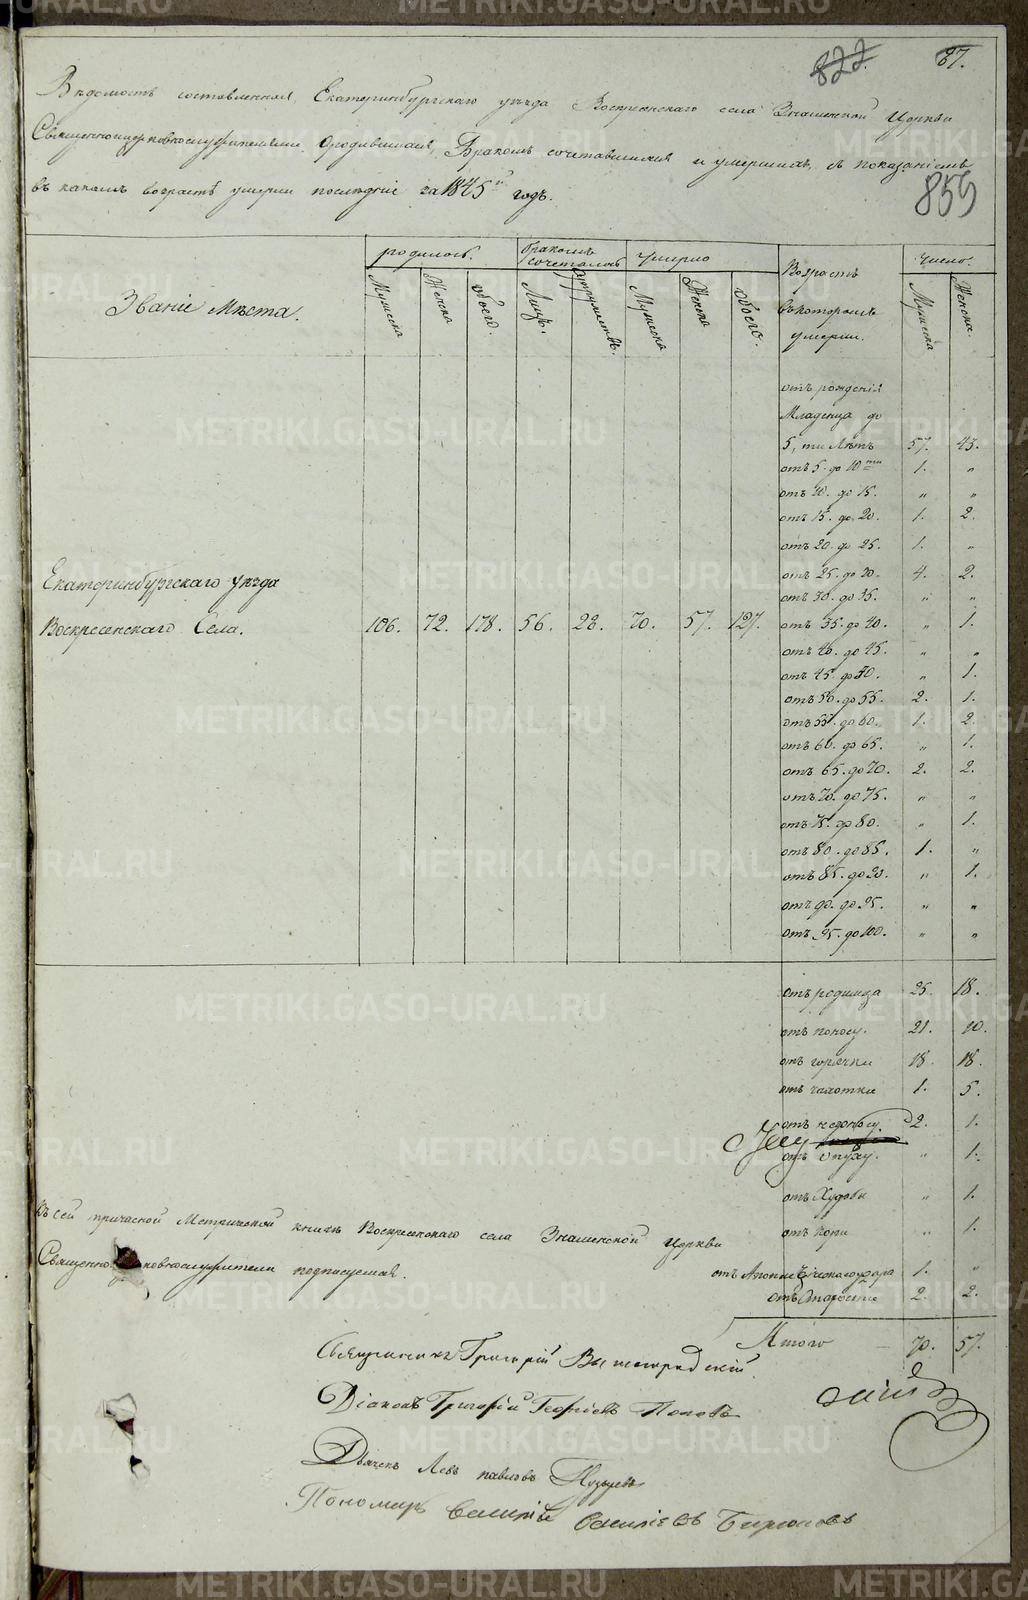 METRIKI.GASO-URAL.RU
822. 87.
Вѣдомость составленная, Екатеринбургскаго уѣзда Воскресенскаго села Знаменской Церкви
Священноцерковнослужителями, о родившихся, Бракомъ сочетавшихся и умершихъ, съ показанiемъ
въ какомъ возрастѣ умерли последнiе за 1845й годъ.
859
Званiе Мѣста. родилось. бракомъ сочеталось умерло Возрастъ въ которомъ умерли. число.
Мужеска Женска обоего. Лицъ. супружествъ. Мужеска Женска обоего. Мужеска Женска.
отъ рожденiя
Младенца до
5, ти Лѣтъ 57. 43.
отъ 5. до 10ти 1. „
отъ 10. до 15. „ „
отъ 15. до 20. 1. 2.
отъ 20. до 25. 1. „
отъ 25. до 30. 4. 2.
отъ 30. до 35. „ „
Екатеринбургскаго уѣзда
Воскресенскаго Села. 106. 72. 178. 56. 28. 70. 57. 127. отъ 35. до 40. „ 1.
отъ 40. до 45. „ „
отъ 45. до 50. „ 1.
отъ 50. до 55. 2. 1.
отъ 55. до 60. 1. 2.
отъ 60. до 65. „ 1.
отъ 65. до 70. 2. 2.
отъ 70. до 75. „ „
отъ 75. до 80. „ 1.
отъ 80. до 85. 1. „
отъ 85. до 90. „ 1.
отъ 90. до 95. „ „
отъ 95. до 100. „ „
отъ родимца 25. 18.
отъ поносу. 21. 10.
отъ горячки 18. 18.
отъ чахотки 1. 5.
отъ 2. 1.
отъ опуху. „ 1.
отъ Худобы „ 1.
отъ кори „ 1.
Къ сей причасной Метрической книгѣ Воскресенскаго села Знаменской Церкви
Священно ковнослужители подписуемся.
отъ Апоплексическаго удара 1. „
отъ Старости 2. 2.
Итого 70. 57.
Священникъ Григорiй
Дiаконъ Григорiй Георгiевъ Поповъ
Дьячекъ Левъ Павловъ
Пономарь Василiй Василiевъ Бирюковъ